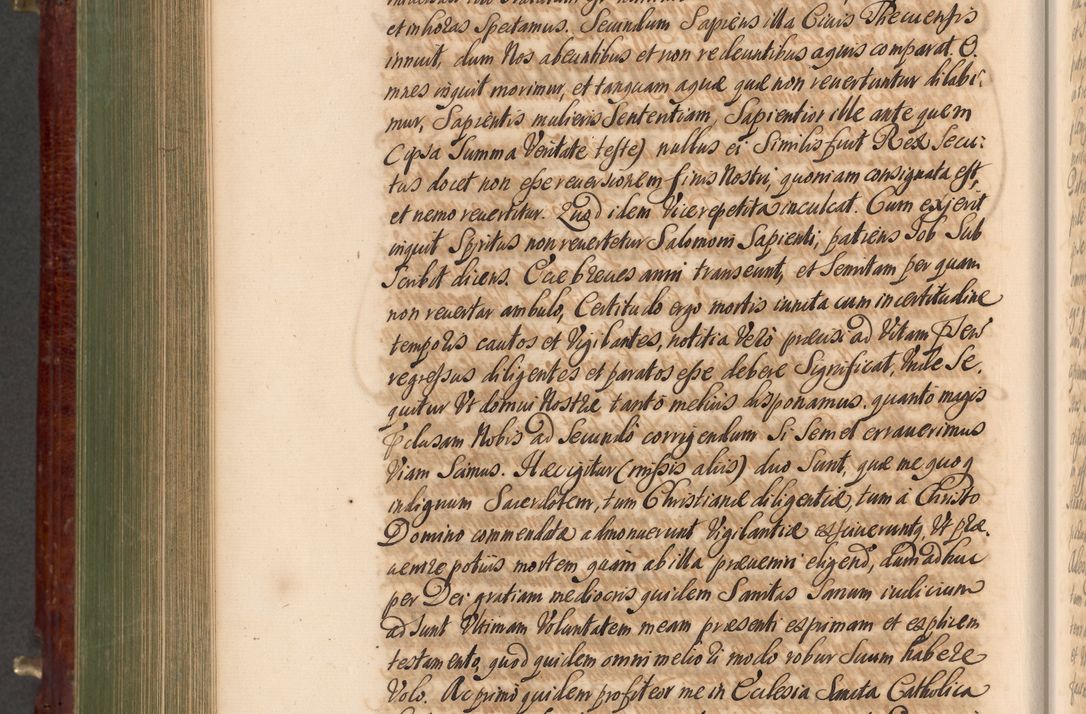 et in horas Spectamus. Secundum Sapiens illa Civis Thecuensis
innuit, dum Nos abeuntibus et non redeuntibus aquis comparat. O.
mnes inquit morimur, et tanquam aquæ quæ non revertuntur dilabi:
mur, Sapientis mulieris Sententiam, Sapientior ille ante quem
(ipsa Summa Veritate teste) nullus ei Similis fuit Rex Secu:
tus docet non esse reversionem finis Nostri, quoniam consignata est,
et nemo revertitur. Quod idem Vice repetita inculcat. Cum exierit
inquit Spiritus non revertetur Salomoni Sapienti, patiens Job Sub
Scribit dicens. Ecce breves anni transeunt, et Semitam per quam
non revertar ambulo, Certitudo ergo mortis iuncta cum incertitudine
temporis cautos et Vigilantes, notitia Verò præcisi ad Vitam
regressus diligentes et paratos esse debere Significat, Unde Se.
quitur Ut domui Nostræ tanto melius disponamus. quanto magis
clusam Nobis ad Secundò corrigendum Si Semel erraverimus
Viam Scimus. Hæc igitur (missis aliis) duo Sunt, quæ me quoq
indignum Sacerdotem, tum Christianæ diligentiæ, tum à Christo
Domino commendatæ admonuerunt Vigilantiæ Ut præ.
venire potius mortem quam ab illa præveniri eligend, dum adhuc
per Dei gratiam mediocris quidem Sanitas Sanum iudicium
adsunt Ultimam Voluntatem meam præsenti exprimam et explicem
testamento, quod quidem omni meliori modo robur Suum habere
Volo. Ac primò quidem profiteor me in Ecclesia Sancta Catholica